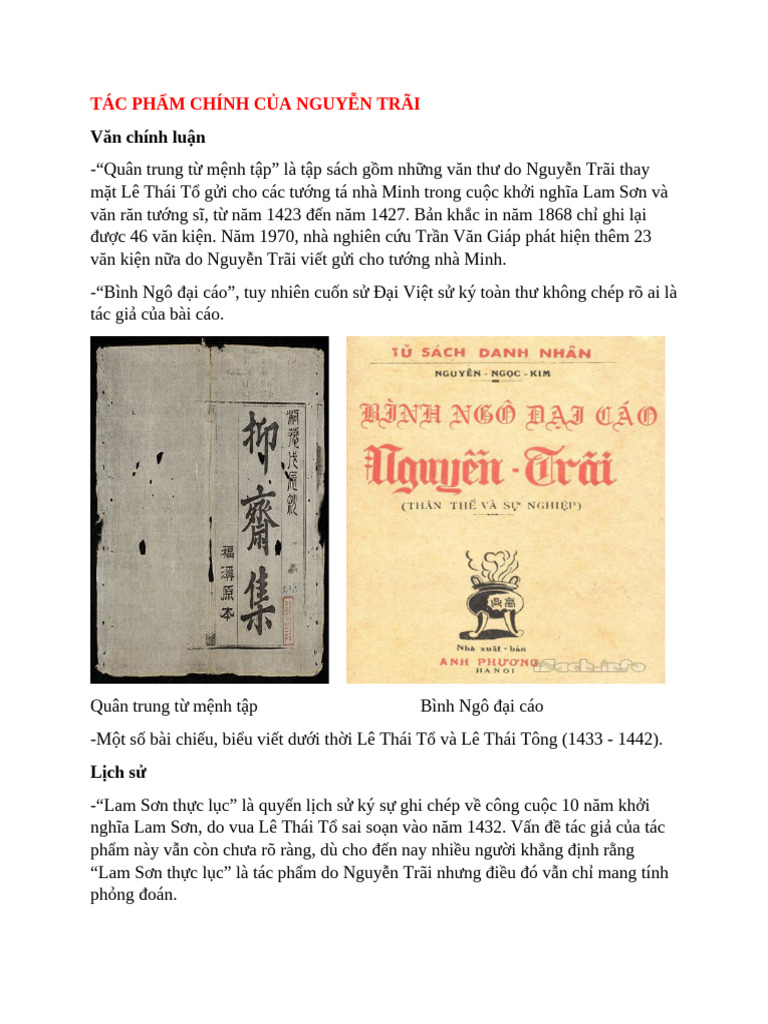 TÁC PHẨM CHÍNH CỦA NGUYỄN TRÃI
Văn chính luận
-“Quân trung từ mệnh tập” là tập sách gồm những văn thư do Nguyễn Trãi thay
mặt Lê Thái Tổ gửi cho các tướng tá nhà Minh trong cuộc khởi nghĩa Lam Sơn và
văn răn tướng sĩ, từ năm 1423 đến năm 1427. Bản khắc in năm 1868 chỉ ghi lại
được 46 văn kiện. Năm 1970, nhà nghiên cứu Trần Văn Giáp phát hiện thêm 23
văn kiện nữa do Nguyễn Trãi viết gửi cho tướng nhà Minh.
-“Bình Ngô đại cáo”, tuy nhiên cuốn sử Đại Việt sử ký toàn thư không chép rõ ai là
tác giả của bài cáo.
抑齋集
福溪原本
TỦ SÁCH DANH NHÂN
NGUYÊN - NGỌC - KIM
BÌNH NGÔ ĐẠI CÁO
Nguyễn - Trãi
(THÂN THẾ VÀ SỰ NGHIỆP)
Nhà xuất - bản
ANH PHƯƠNG
HANOI
iSach.info
Quân trung từ mệnh tập
Bình Ngô đại cáo
-Một số bài chiếu, biểu viết dưới thời Lê Thái Tổ và Lê Thái Tông (1433 - 1442).
Lịch sử
-“Lam Sơn thực lục” là quyển lịch sử ký sự ghi chép về công cuộc 10 năm khởi
nghĩa Lam Sơn, do vua Lê Thái Tổ sai soạn vào năm 1432. Vấn đề tác giả của tác
phẩm này vẫn còn chưa rõ ràng, dù cho đến nay nhiều người khẳng định rằng
“Lam Sơn thực lục” là tác phẩm do Nguyễn Trãi nhưng điều đó vẫn chỉ mang tính
phỏng đoán.